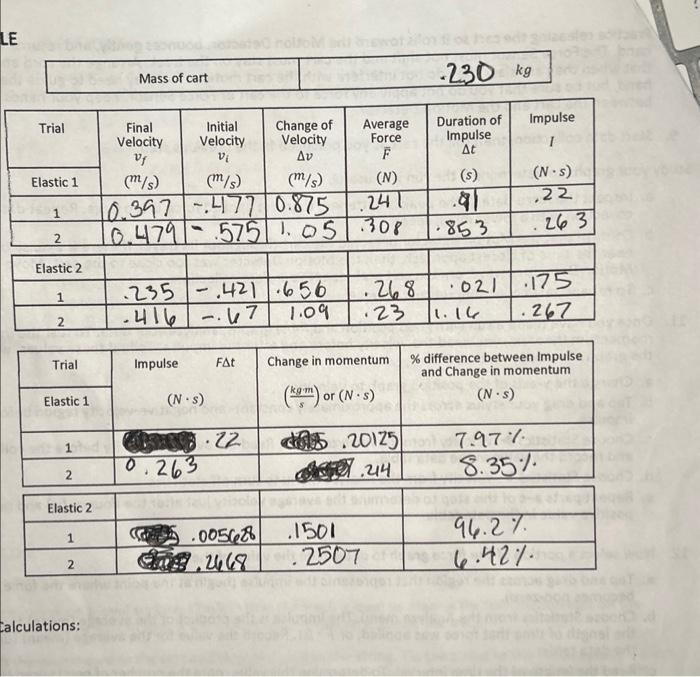 LE
Mass of cart .230 kg
Trial Final Velocity v_f (m/s) Initial Velocity v_i (m/s) Change of Velocity Δv (m/s) Average Force F̄ (N) Duration of Impulse Δt (s) Impulse I (N·s)
Elastic 1
1 0.397 -.477 0.875 .24 .91 .22
2 0.479 -.575 1.05 .308 .853 .263
Elastic 2
1 .235 -.421 .656 .268 .021 .175
2 .416 -.67 1.09 .23 1.16 .267
Trial Impulse FΔt (N·s) Change in momentum (kg m/s) or (N·s) % difference between Impulse and Change in momentum (N·s)
Elastic 1
1 .22 .20125 7.97%
2 0.263 .214 8.35%
Elastic 2
1 .005628 .1501 96.2%
2 .2668 .2507 6.42%
Calculations: